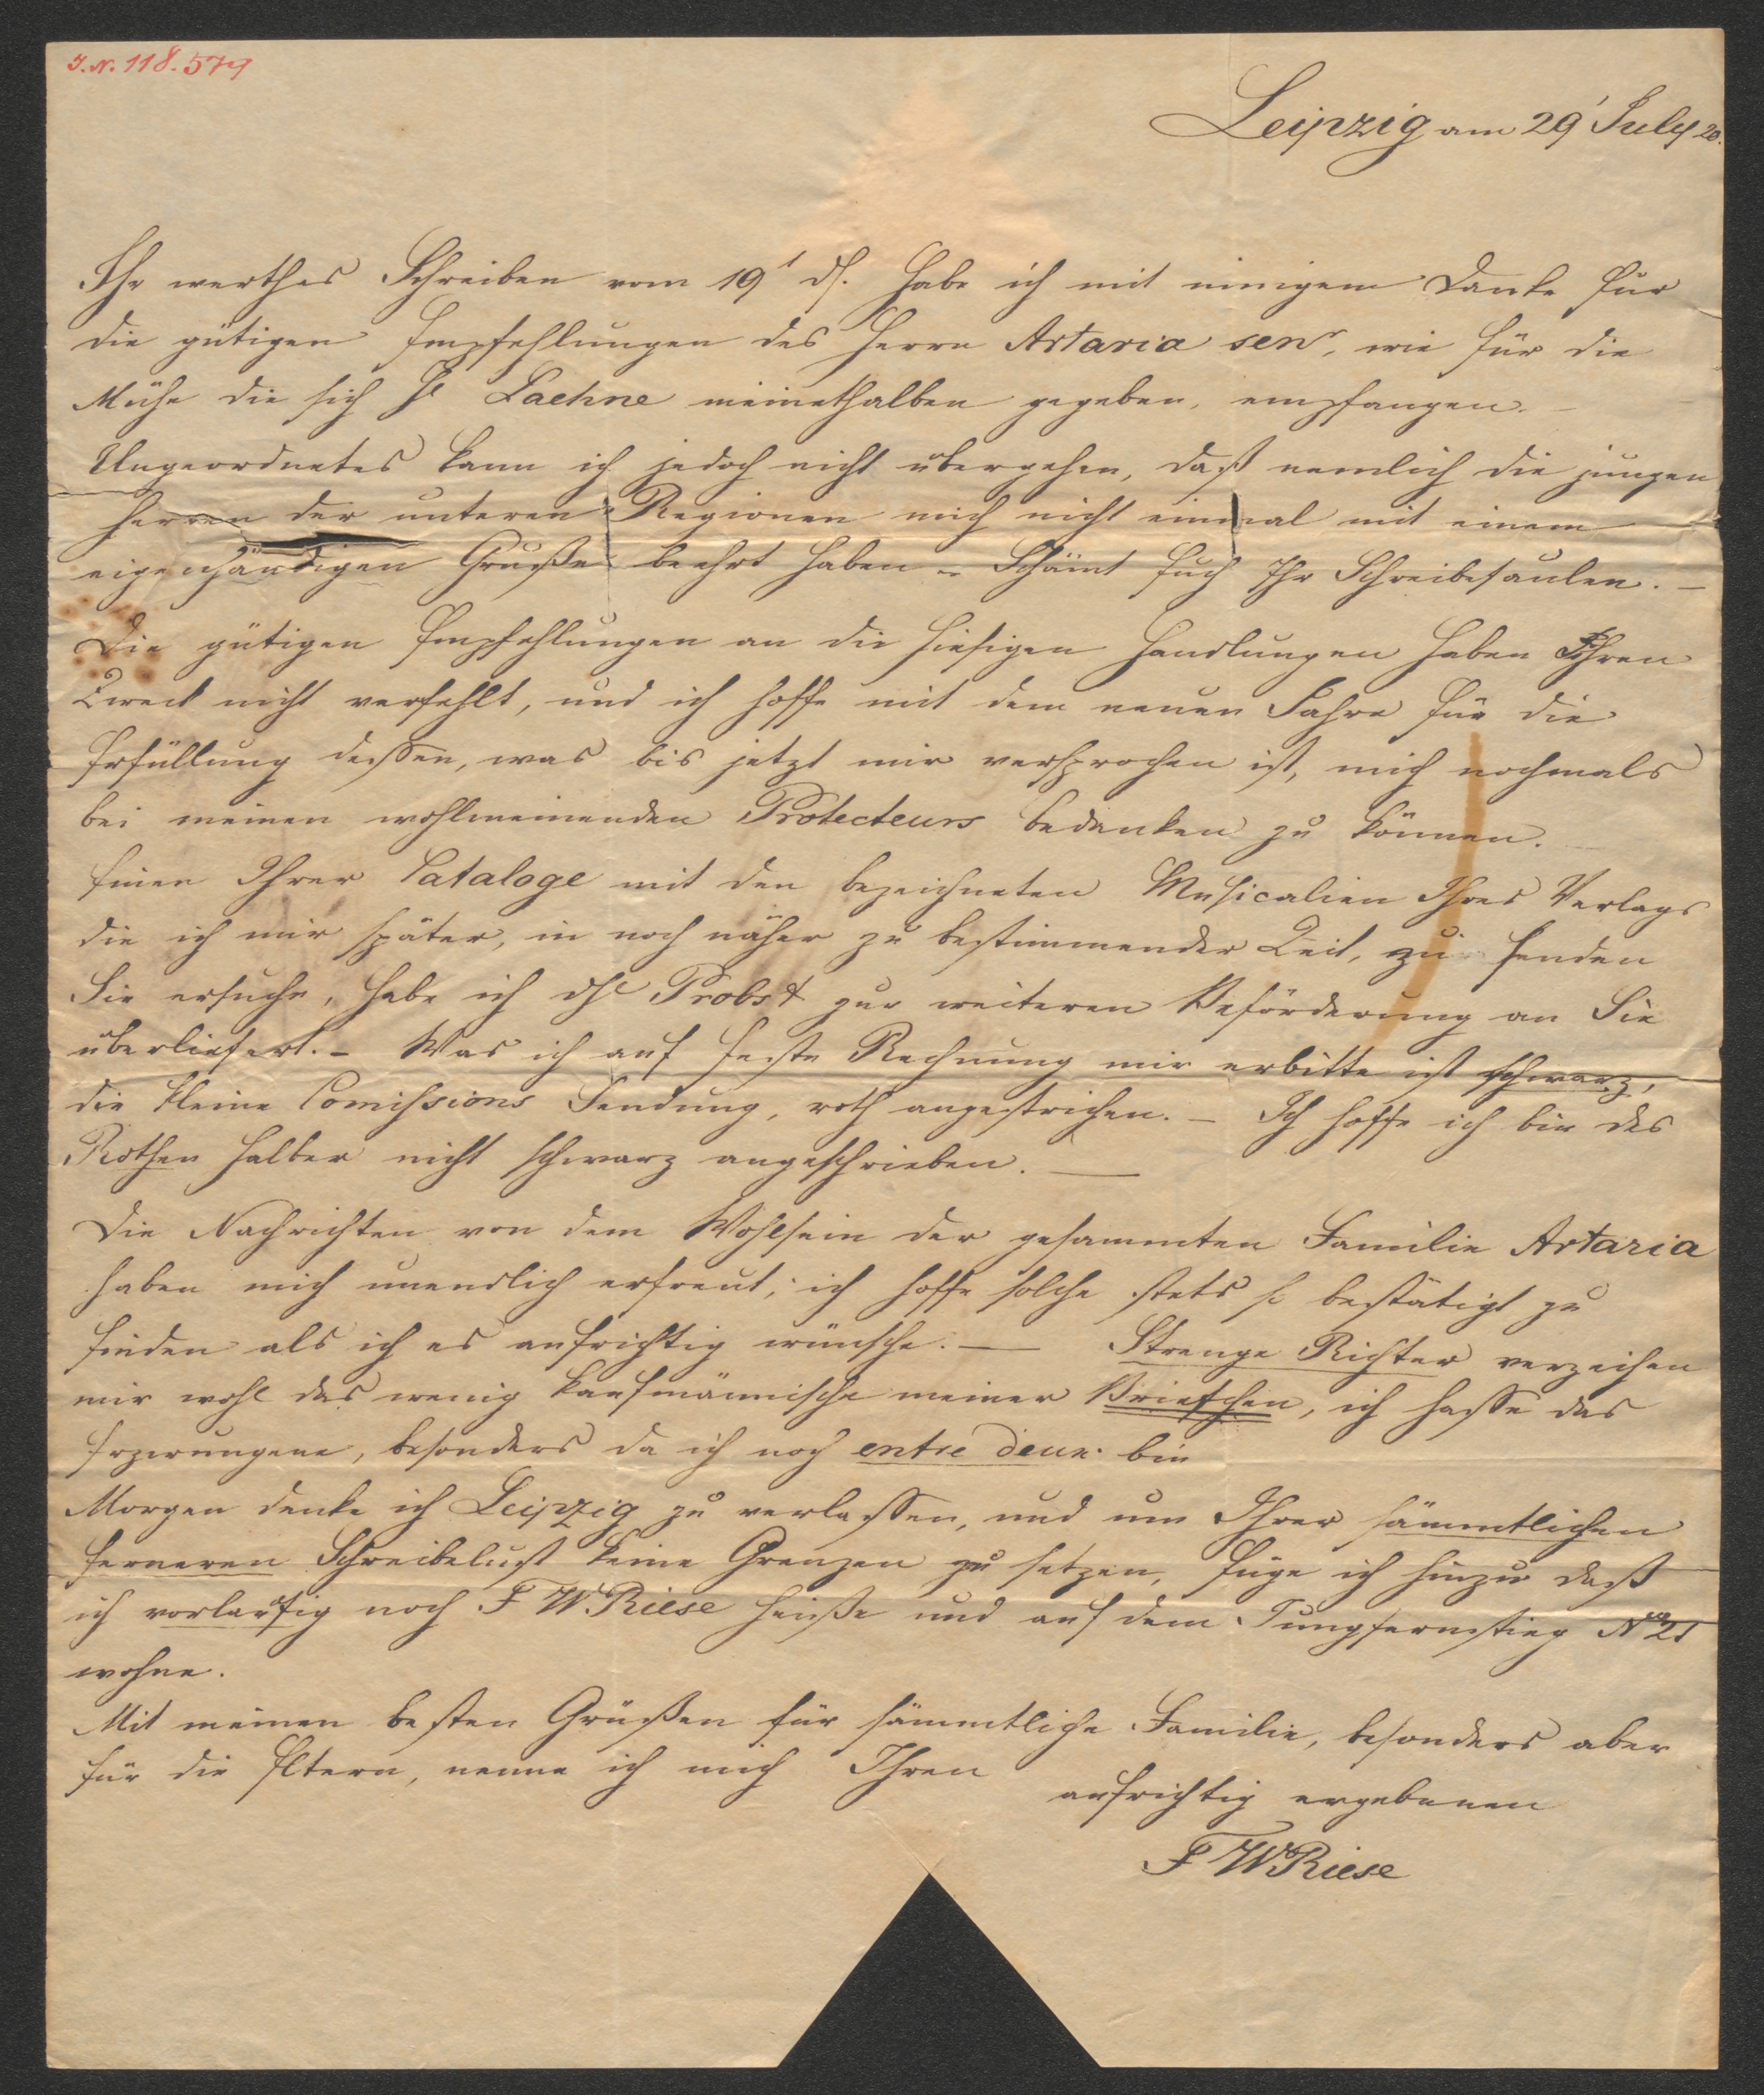 J. N. 118.574
Leipzig am 29' July 20.
Ihr werthes Schreiben vom 19' ds. habe ich mit innigem Danke für
die gütigen Empfehlungen des Herrn Artaria senr, wie für die
Mühe die sich Hr meinethalben gegeben, empfangen. –
Ungeordnetes kann ich jedoch nicht übergehen, daß nemlich die jungen
Herren der unteren Regionen mich nicht einmal mit einem
eigenhändigen Gruße beehrt haben – Schämt Euch Ihr Schreibefaulen. –
Die gütigen Empfehlungen an die hiesigen Handlungen haben Ihren
Zweck nicht verfehlt, und ich hoffe mit dem neuen Jahre für die
Erfüllung dessen, was bis jetzt mir versprochen ist, mich nochmals
bei meinen wohlmeinenden Protecteurs bedanken zu können.
Einen Ihrer Cataloge mit den bezeichneten Musicalien Ihres Verlags
die ich mir später, in noch näher zu bestimmender Zeit, zu senden
Sie ersuche, habe ich Probst zur weiteren Beförderung an Sie
überliefert. – Was ich auf feste Rechnung mir erbitte ist schwarz,
die kleine Comissions Sendung, roth angestrichen. – Ich hoffe ich bin des
Rothen halber nicht schwarz angeschrieben. –
Die Nachrichten von dem Wohlsein der gesammten Familie Artaria
haben mich unendlich erfreut; ich hoffe solche stets so bestätigt zu
finden als ich es aufrichtig wünsche. – Strenge Richter verzeihen
mir wohl das wenig kaufmännische meiner Briefchen, ich hasse das
Erzwungene, besonders da ich noch entre deux bin
Morgen denke ich Leipzig zu verlassen, und um Ihrer sämmtlichen
ferneren Schreibelust keine Grenzen zu setzen, füge ich hinzu daß
ich vorläufig noch F W. Riese heiße und auf dem Jungfernstieg No 21
wohne.
Mit meinen besten Grüßen für sämmtliche Familie, besonders aber
für die Eltern, nenne ich mich Ihren
aufrichtig ergebenen
F W Riese